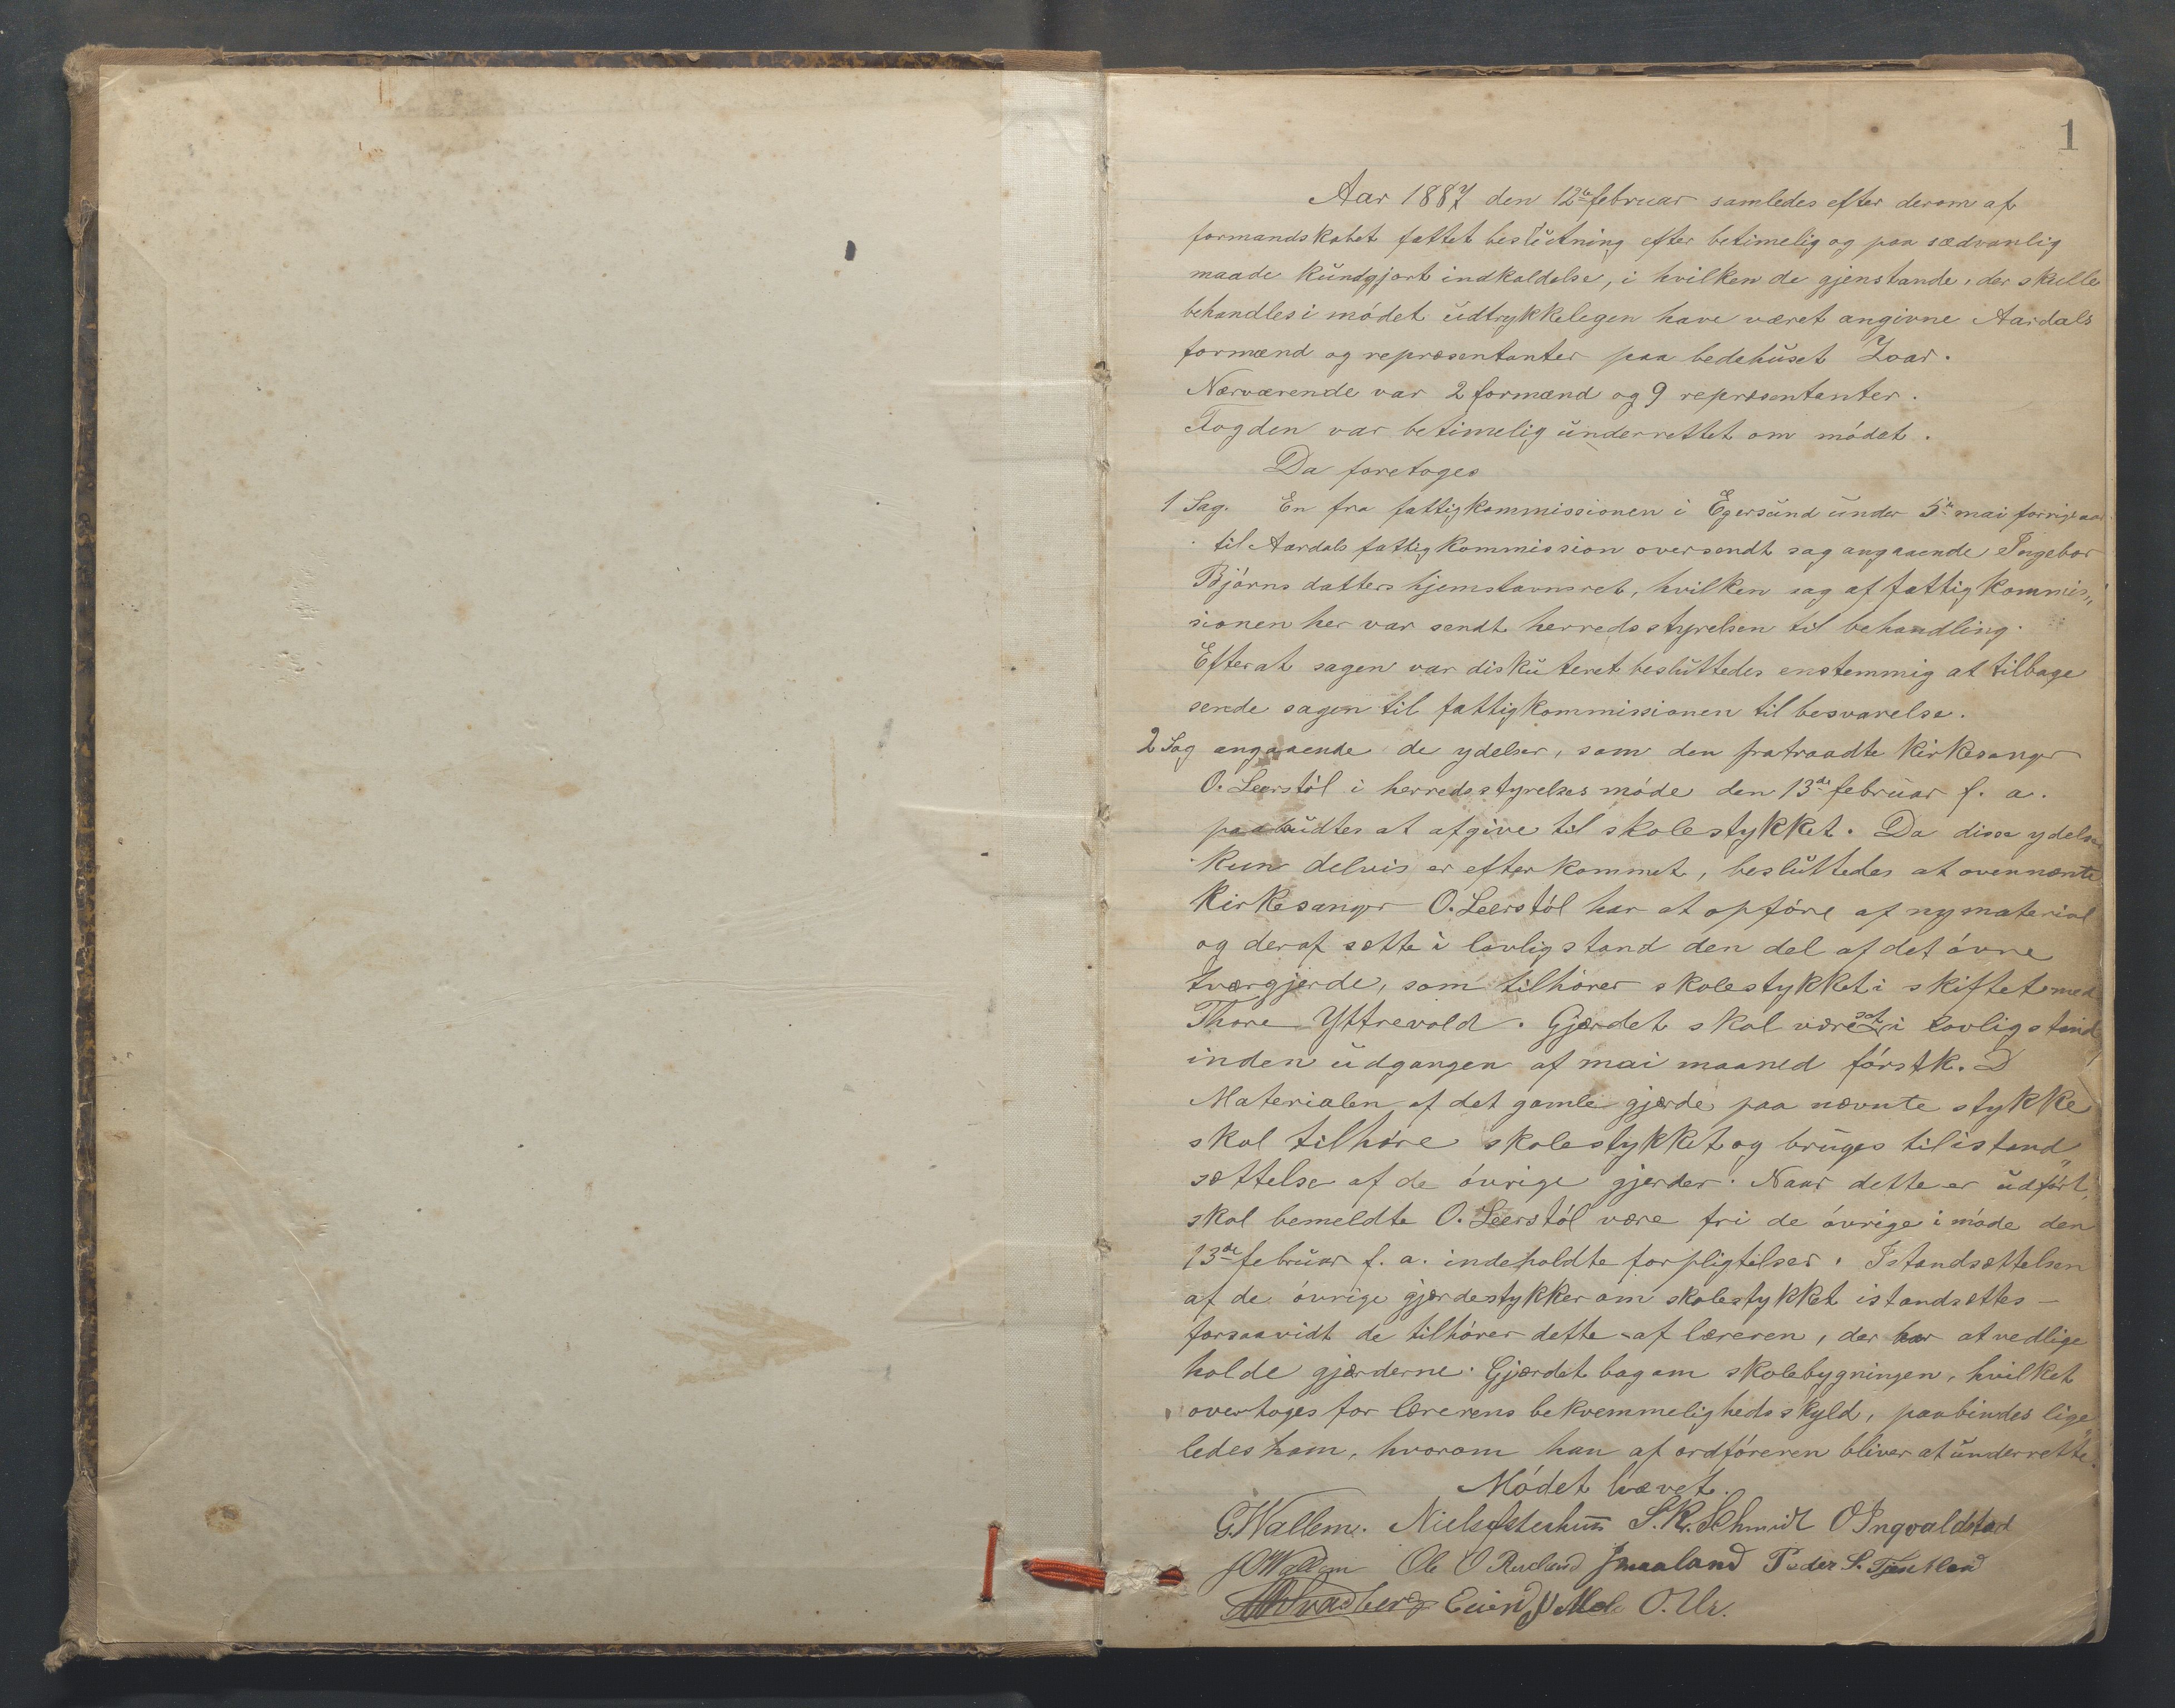 1
Aar 1887 den 12te februar samledes efter derom af
formandskabet fattet beslutning efter betimelig og paa sædvanlig
maade kundgjort indkaldelse, i hvilken de gjenstande, der skulle
behandles i mödet udtrykkelegen have været angivne Aardals
formænd og repræsentanter paa bedehuset Zoar.
Nærværende var 2 formænd og 9 repræsentanter.
Fogden var betimelig underrettet om mödet.
Da foretoges
1 Sag. En fra fattigkommissionen i Egersund under 5te mai forrige aar
til Aardals fattigkommission oversendt sag angaaende Ingebor
Björnsdatters hjemstavnsret, hvilken sag af fattigkommis„
sionen her var sendt herredsstyrelsen til behandling.
Efter at sagen var diskuteret besluttedes enstemmig at tilbage
sende sagen til fattigkommissionen til besvarelse.
2 Sag angaaende de ydelser, som den fratraadte kirkesanger
O. Leerstöl i herredsstyrelses möde den 13de februar f. a.
paabudtes at afgive til skolestykket. Da disse ydelser
kun delvis er efterkommet, besluttedes at ovennænte
kirkesanger O. Leerstöl har at opföre af ny material
og deraf sætte i lovlig stand den del af det övre
tværgjerde, som tilhörer skolestykket i skiftet med
Thore Yttrevold. Gjærdet skal være sat i lovlig stand
inden udgangen af mai maaned förstk.
Materialen af det gamle gjærde paa nævnte stykke
skal tilhöre skolestykket og bruges til istand„
sættelse af de övrige gjerder. Naar dette er udfört,
skal bemeldte O. Leerstöl være fri de övrige i möde den
13de februar f. a. indeholdte forpligtelser. Istandsættelsen
af de övrige gjærdestykker om skolestykket istandsættes –
forsaavidt de tilhörer dette – af læreren, der har at vedlige
holde gjærderne. Gjærdet bagom skolebygningen, hvilket
overtoges for lærerens bekvemmeligheds skyld, paabindes lige„
ledes ham, hvorom han af ordföreren bliver at underrette.
Mödet hævet.
G. Wallem. Niels S. R. Schmidt O Ingvaldstad
J O Wallem Ole O Rueland Smaaland Peder S.
Svadberg Eivind Mel O. Ur.